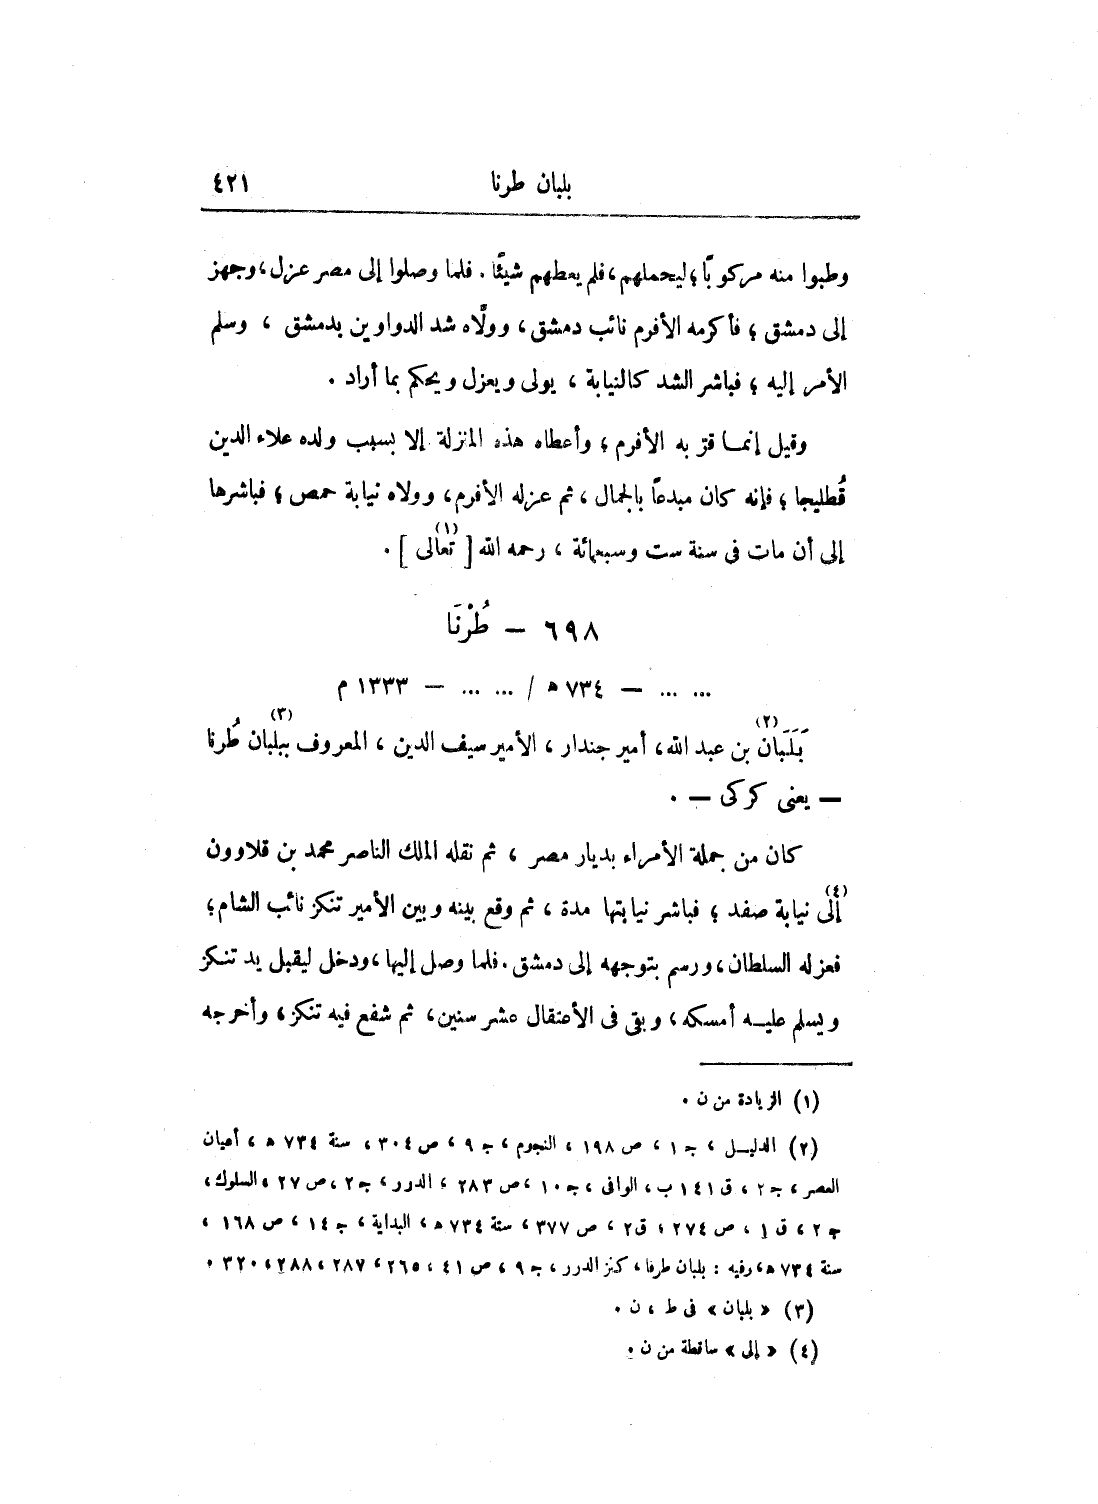 بلبان طرنا ٤٢١
وطبوا منه مركوبًا؛ ليحملهم، فلم يعطهم شيئًا. فلما وصلوا إلى مصر عزل، وجهز
إلى دمشق؛ فأكرمه الأفرم نائب دمشق، وولَّاه شد الدواوين بدمشق، وسلم
الأمر إليه؛ فباشر الشد كالنيابة، يولى ويعزل ويحكم بما أراد.
وقيل إنما قرّ به الأفرم؛ وأعطاه هذه المنزلة إلا بسبب ولده علاء الدين
قُطليجا؛ فإنه كان مبدعًا بالجمال، ثم عزله الأفرم، وولاه نيابة حمص؛ فباشرها
إلى أن مات فى سنة ست وسبعمائة، رحمه الله [تعالى](١).
٦٩٨ — طُرْنَا
... ... — ٧٣٤ ه / ... ... — ١٣٣٣ م
بَلَبَان(٢) بن عبد الله، أمير جندار، الأمير سيف الدين، المعروف ببلبان(٣) طُرنا
— يعنى كركى — .
كان من جملة الأمراء بديار مصر، ثم نقله الملك الناصر محمد بن قلاوون
إلى(٤) نيابة صفد؛ فباشر نيابتها مدة، ثم وقع بينه وبين الأمير تنكز نائب الشام؛
فعزله السلطان، ورسم بتوجهه إلى دمشق. فلما وصل إليها، ودخل ليقبل يد تنكز
ويسلم عليه أمسكه، وبقى فى الأعتقال عشر سنين، ثم شفع فيه تنكز، وأخرجه
(١) الزيادة من ن.
(٢) الدليل، ج ١، ص ١٩٨، النجوم، ج ٩، ص ٣٠٤، سنة ٧٣٤ ه، أعيان
العصر، ج ٢، ق ١٤١ ب، الوافى، ج ١٠، ص ٢٨٣، الدرر، ج ٢، ص ٢٧، السلوك،
ج ٢، ق ١، ص ٢٧٤، ق ٢، ص ٣٧٧، سنة ٧٣٤ ه، البداية، ج ١٤، ص ١٦٨،
سنة ٧٣٤ ه، وفيه: بلبان طرفا، كنز الدرر، ج ٩، ص ٤١، ٢٦٥، ٢٨٧، ٢٨٨، ٣٢٠.
(٣) «بلبان» فى ط، ن.
(٤) «إلى» ساقطة من ن.